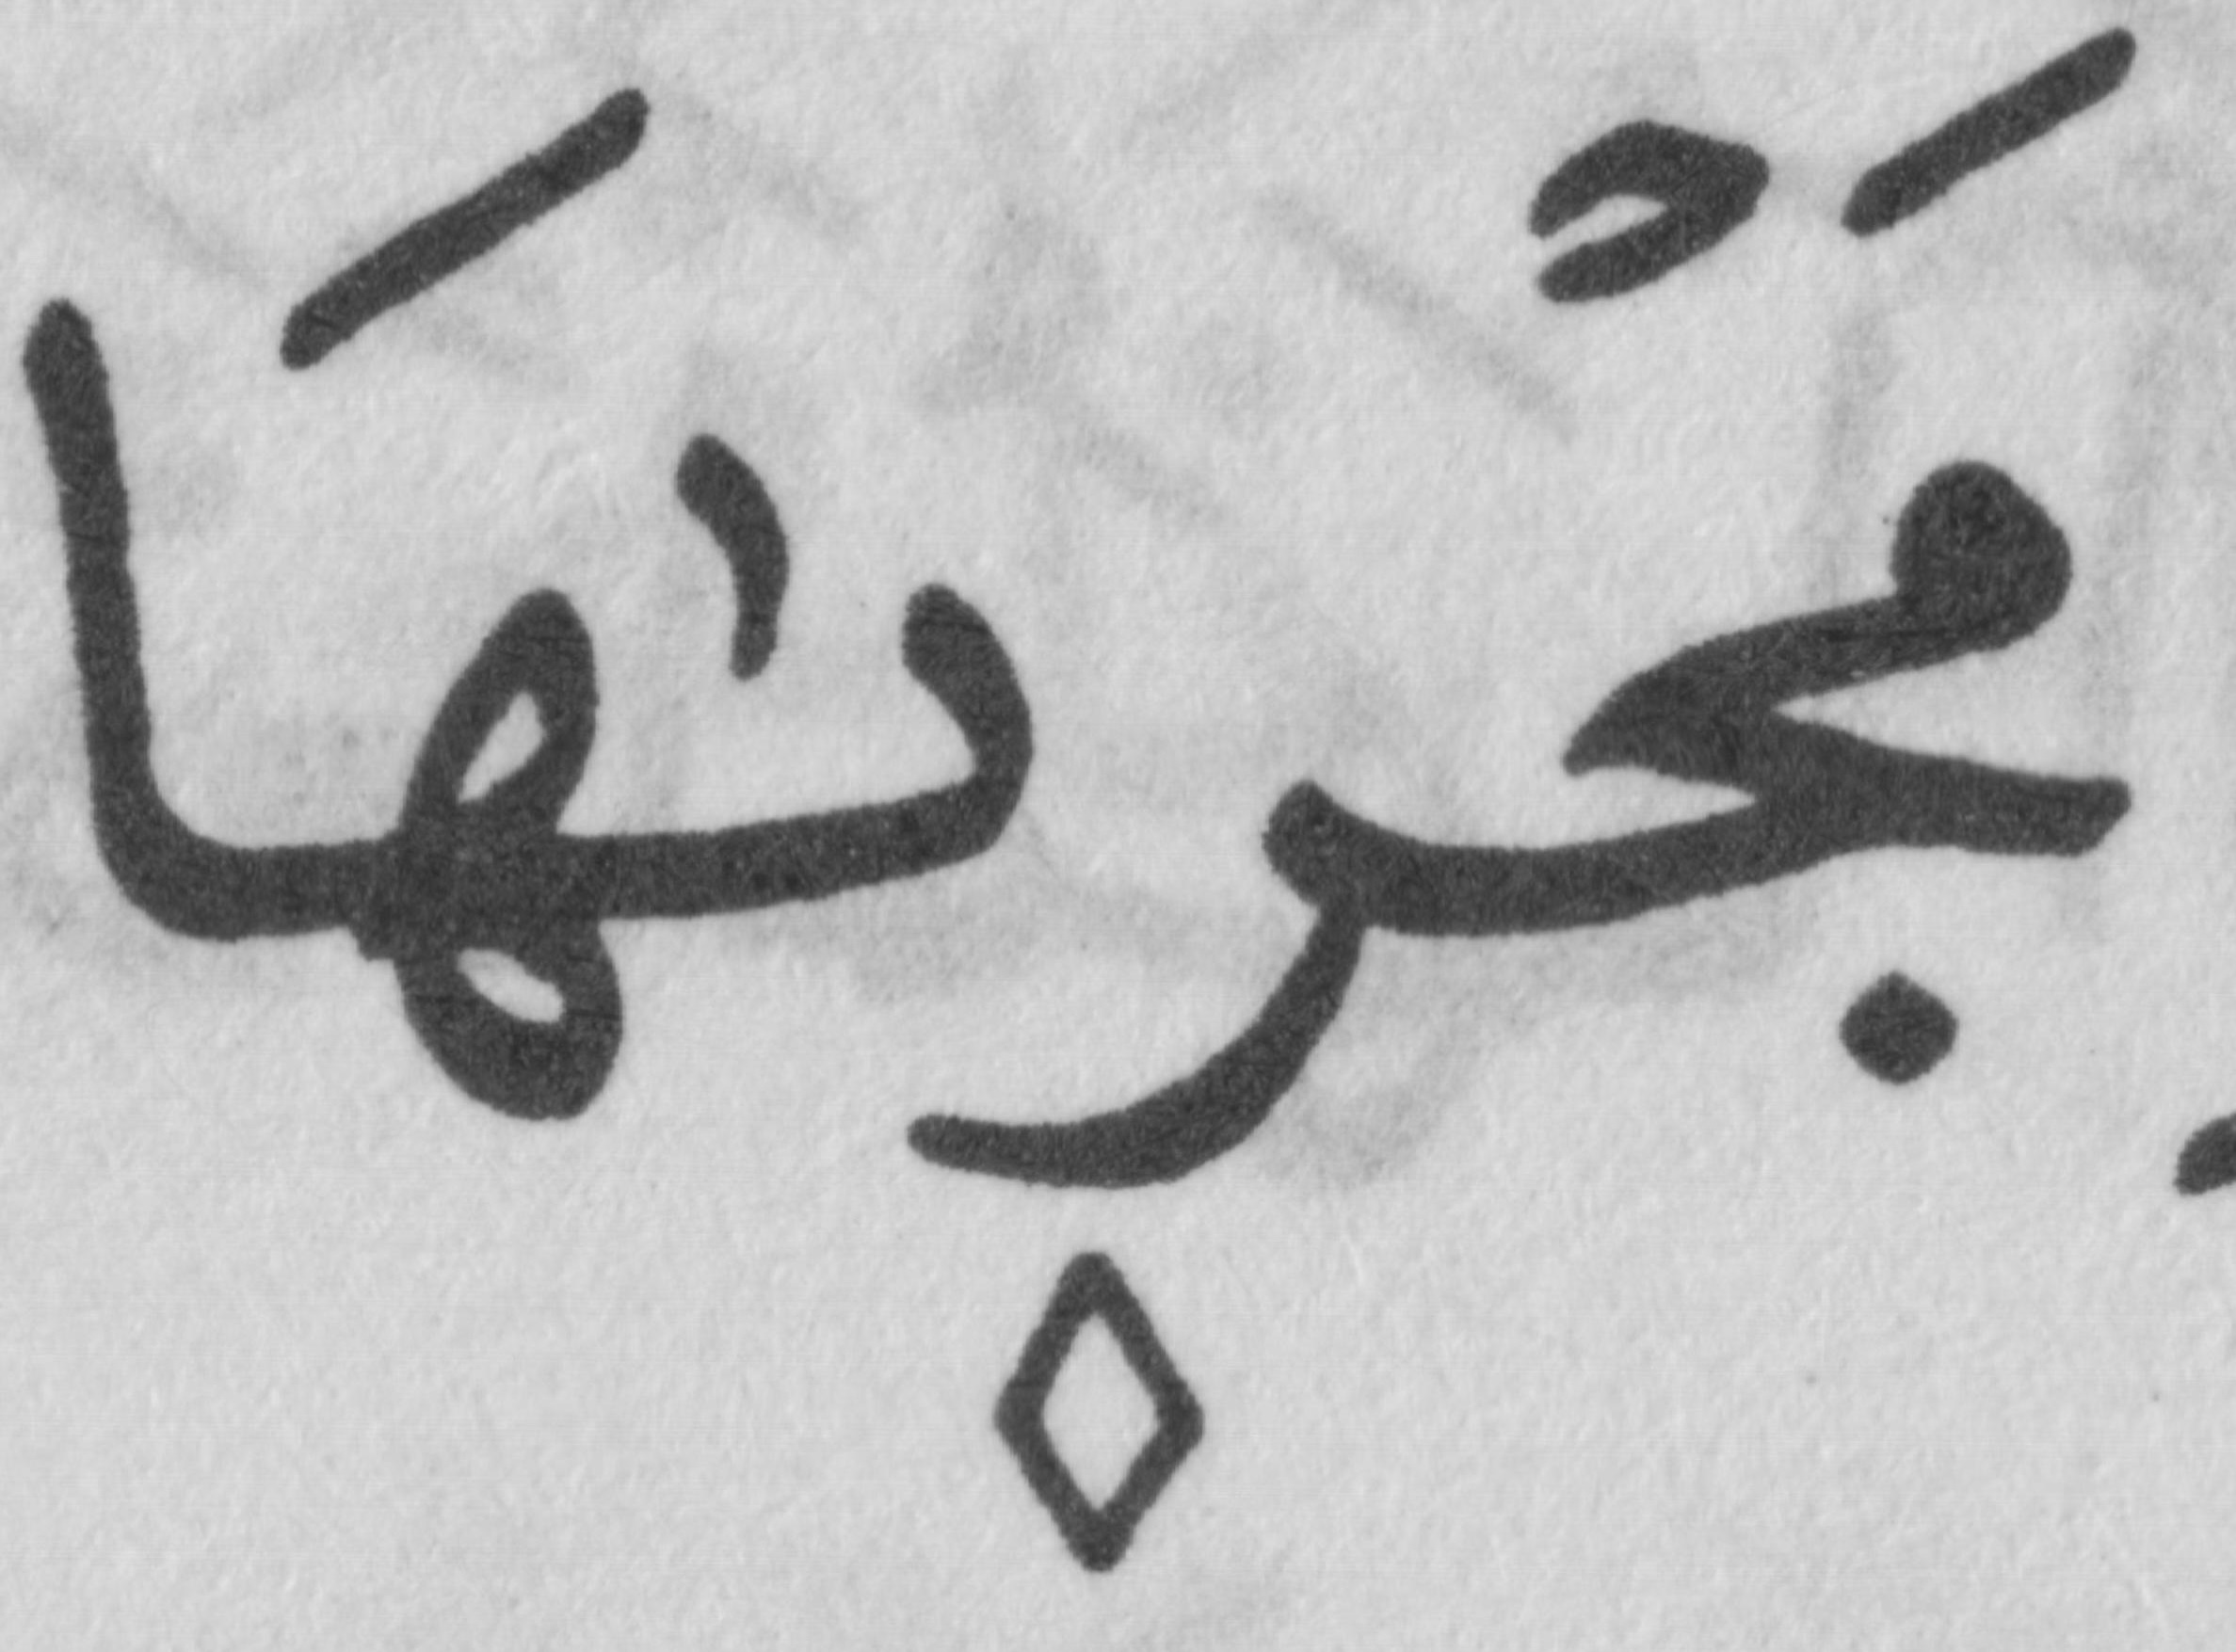 مَجْر۪ىٰهَا